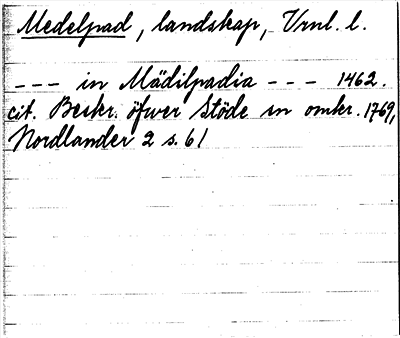 Medelpad, landskap, Vrnl. l.
--- in Mädilpadia --- 1462.
cit. Beskr. öfwer Stöde sn omkr. 1769,
Nordlander 2 s. 61